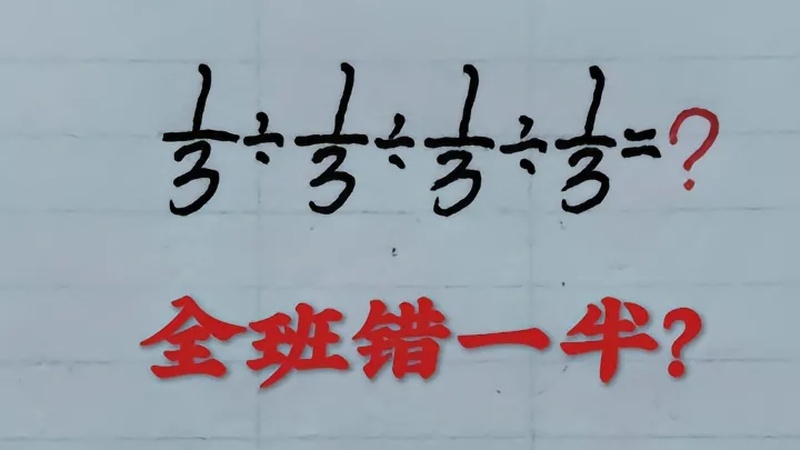 1/3 ÷ 1/3 ÷ 1/3 ÷ 1/3 = ?
全班错一半?